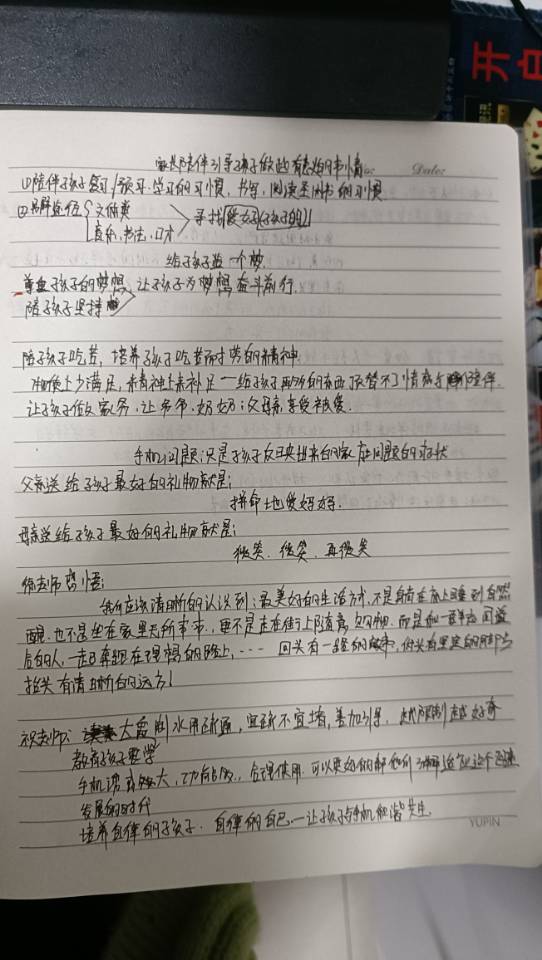 开启
Date:
家长陪伴引导孩子做些有意义的事情
①陪伴孩子复习/预习.学习的习惯，书写，阅读
② 文体类
音乐.书法.口才
寻找爱好(孩子的)
给孩子造一个梦
孩子的梦想
让孩子为梦想奋斗前行.
陪孩子坚持
陪孩子吃苦，培养孩子吃苦耐劳的精神
物质上少满足，精神上补足一给孩子再多的东西 替不了情感 陪伴.
让孩子做家务，让爷爷.奶奶；父母亲享受被爱.
手机问题:只是孩子反映出来的家庭问题的症状
父亲送给孩子最好的礼物就是；
拼命地爱妈妈.
母亲送给孩子最好的礼物就是；
微笑、微笑、再微笑
老师感悟；
我们应该清晰的认识到:最美好的生活方式，不是躺在床上睡到自然
醒.也不是坐在家里无所事事.更不是走在街上随意 购物.而是和一群志同道
合的人，一起奔跑在理想的路上，…… 回头有一路的故事，低头有坚定的脚步
抬头有清晰的远方！
老师: 大禹 水用疏通，宜疏不宜堵，善加引导. 越限制越好奇
教育孩子要学
手机诱惑 大，功能 ，合理使用.可以更好的帮 这个迅速
发展的时代
培养自律的孩子. 自律的自己.一让孩子与手机和谐共生.
YUPIN